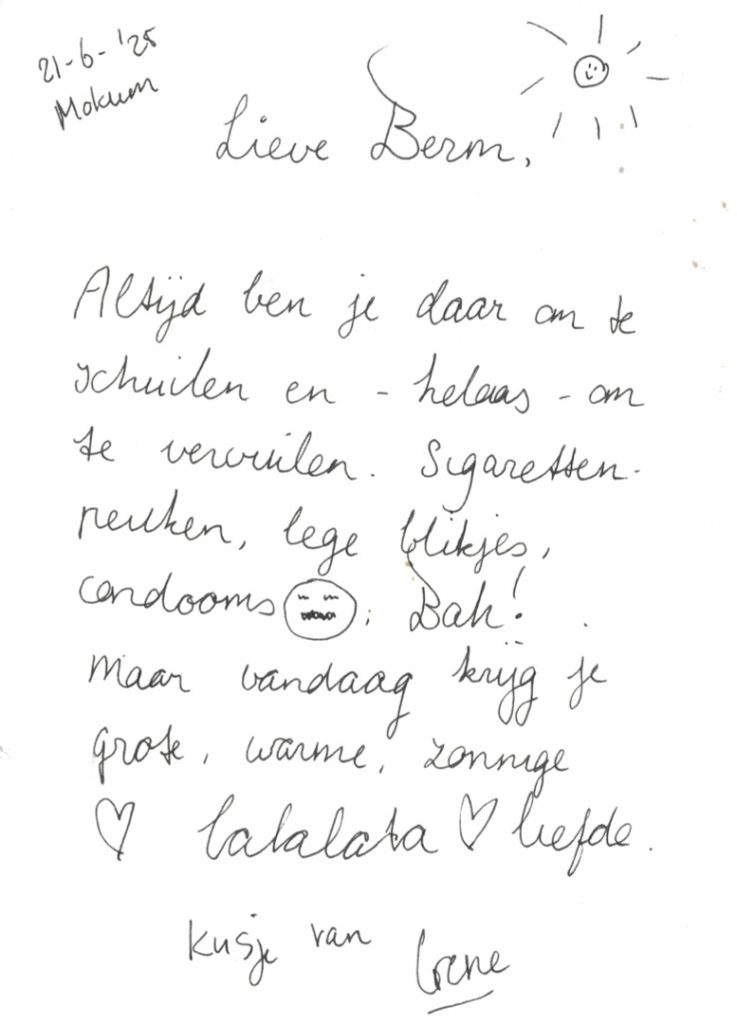 21-6-'25
Mokum
Lieve Berm,
Altijd ben je daar om te
schuilen en - helaas - om
te vervuilen. Sigaretten-
peuken, lege blikjes,
condooms: Bah!
Maar vandaag krijg je
grote, warme, zonnige
♡ lalalala ♡ liefde.
Kusje van Irene